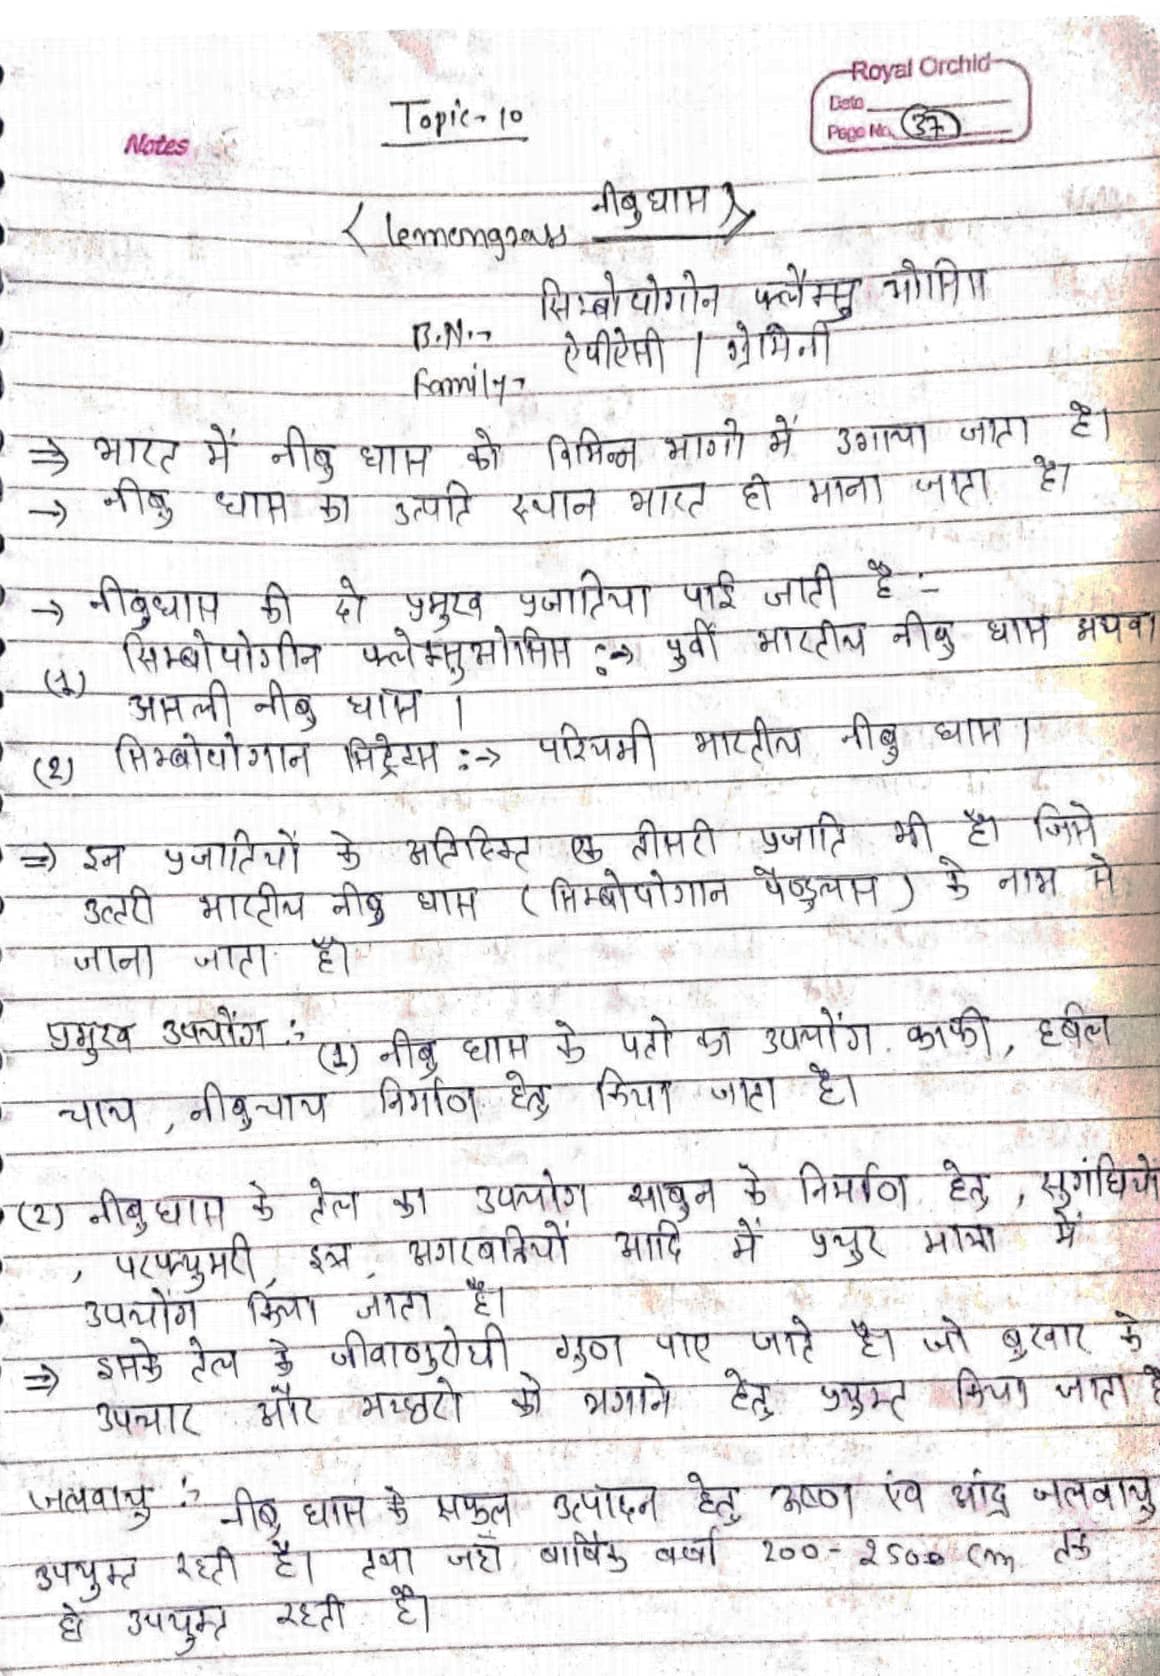 Royal Orchid
Date
Page No. 37
Notes
Topic - 10
नीबु घास
( lemongrass )
B.N. :- सिम्बोपोगोन फ्लैक्सुओसिस
family - ऐपीऐसी / ग्रेमिनी
⇒ भारत में नीबु घास को विभिन्न भागो में उगाया जाता है।
→ नीबु घास का उत्पति स्थान भारत ही माना जाता है।
→ नीबुघास की दो प्रमुख प्रजातिया पाई जाती है :-
(1) सिम्बोपोगीन फ्लेक्सुओसिस :→ पुर्वी भारतीय नीबु घास अथवा
असली नीबु घास ।
(2) सिम्बोपोगान सिट्रेटस :→ पश्चिमी भारतीय नीबु घास ।
⇒ इन प्रजातियों के अतिरिक्त एक तीसरी प्रजाति भी है। जिसे
उत्तरी भारतीय नीबु घास ( सिम्बोपोगान पैण्डुलास ) के नाम से
जाना जाता है।
प्रमुख उपयोंग :- (1) नीबु घास के पतो का उपयोंग काफी, हर्बल
चाय , नीबुचाय निर्माण हेतु किया जाता है।
(2) नीबुघास के तेल का उपयोग साबुन के निर्माण हेतु , सुगंधियों
, परफ्युमरी, इत्र, अगरबतियों आदि में प्रचुर मात्रा में
उपयोंग किया जाता है।
⇒ इसके तेल के जीवाणुरोधी गुण पाए जाते है। जो बुखार के
उपचार और मच्छरो को भगाने हेतु प्रयुक्त किया जाता है
जलवायु :- नीबु घास के सफल उत्पादन हेतु ऊष्ण एंव आंद्र जलवायु
उपयुक्त रहती है। तथा जहाँ वार्षिक वर्षा 200 - 2500 cm तक
हो उपयुक्त रहती है।